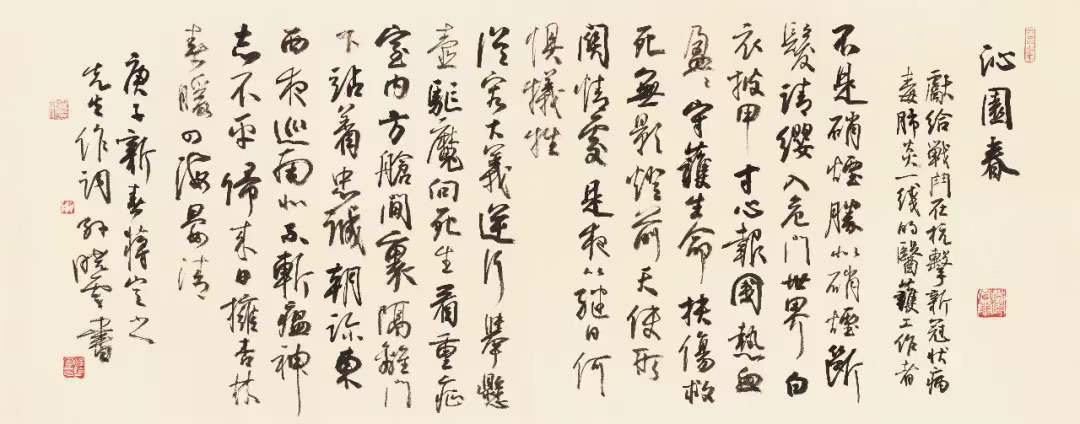 沁園春
獻给戰鬥在抗擊新冠狀病
毒肺炎一线的醫護工作者
不是硝煙勝似硝煙斷
髮請纓入危門世界白
衣披甲寸心報國熱血
盈〻守護生命扶傷救
死無影燈前天使形
關情處是夜以繼日何
惧犧牲
從容大義逆行舉懸
壺驅魔向死生看重症
室内方艙間裏隔離門
下站着忠誠朝診東
西夜巡南北不斬瘟神
志不平歸来日擁杏林
春暖四海晏清
庚子新春蔣定之
先生作詞孙晓雲書